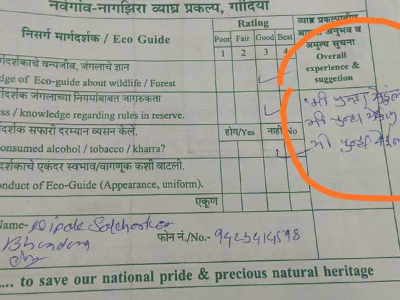 नवेगाव-नागझिरा व्याघ्र प्रकल्प, गोंदिया
निसर्ग मार्गदर्शक / Eco Guide
Rating
Poor Fair Good Best
1 2 3 4
व्याघ्र प्रकल्पातील
अनुभव व
अमुल्य सुचना
Overall
experience &
suggetion
गदर्शकाचे वन्यजीव, जंगलाचे ज्ञान
dge of Eco-guide about wildlife / Forest
दर्शक जंगलाच्या नियमांबाबत जागरुकता
ss / knowledge regarding rules in reserve.
दर्शक सफारी दरम्यान व्यसन केले.
होय/Yes नाही/No
onsumed alcohol / tobacco / kharra?
दर्शकाचे एकंदर स्वभाव/वागणूक कशी वाटली.
nduct of Eco-Guide (Appearance, uniform).
एकूण
मी पुन्हा
मी पुन्हा
मी पुन्हा
Name-
Bhandara
फोन नं./No.-
.... to save our national pride & precious natural heritage